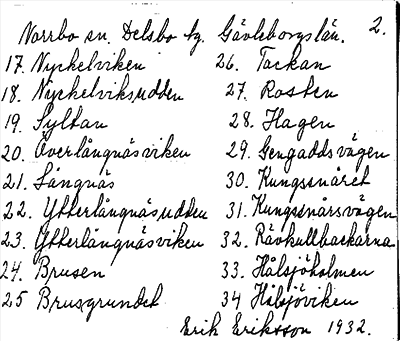 Norrbo sn. Delsbo tg. Gävleborgs län. 2.
17. Nyckelviken
18. Nyckelviksudden
19. Syltan
20. Överlångnäsviken
21. Långnäs
22. Ytterlångnäsudden
23. Ytterlångnäsviken
24. Brusen
25 Brusgrundet
26. Tackan
27. Rosten
28. Hagen
29. Gengaddsvägen
30. Kungssnåret
31. Kungssnårsvägen
32. Rävkullbackarna
33. Hålsjöholmen
34 Hålsjöviken
Erik Eriksson 1932.